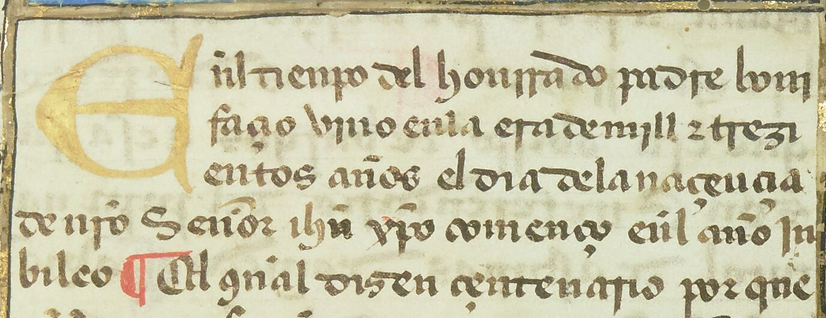 En̄l tienpo del honrrado padre boni
façio vino enla era de mill ⁊ trezi
entos años el dia dela naçençia
de nr̄o Señor ihū xp̄o començo en̄l año Ju
bileo ¶ El qual dizen çentenario por que